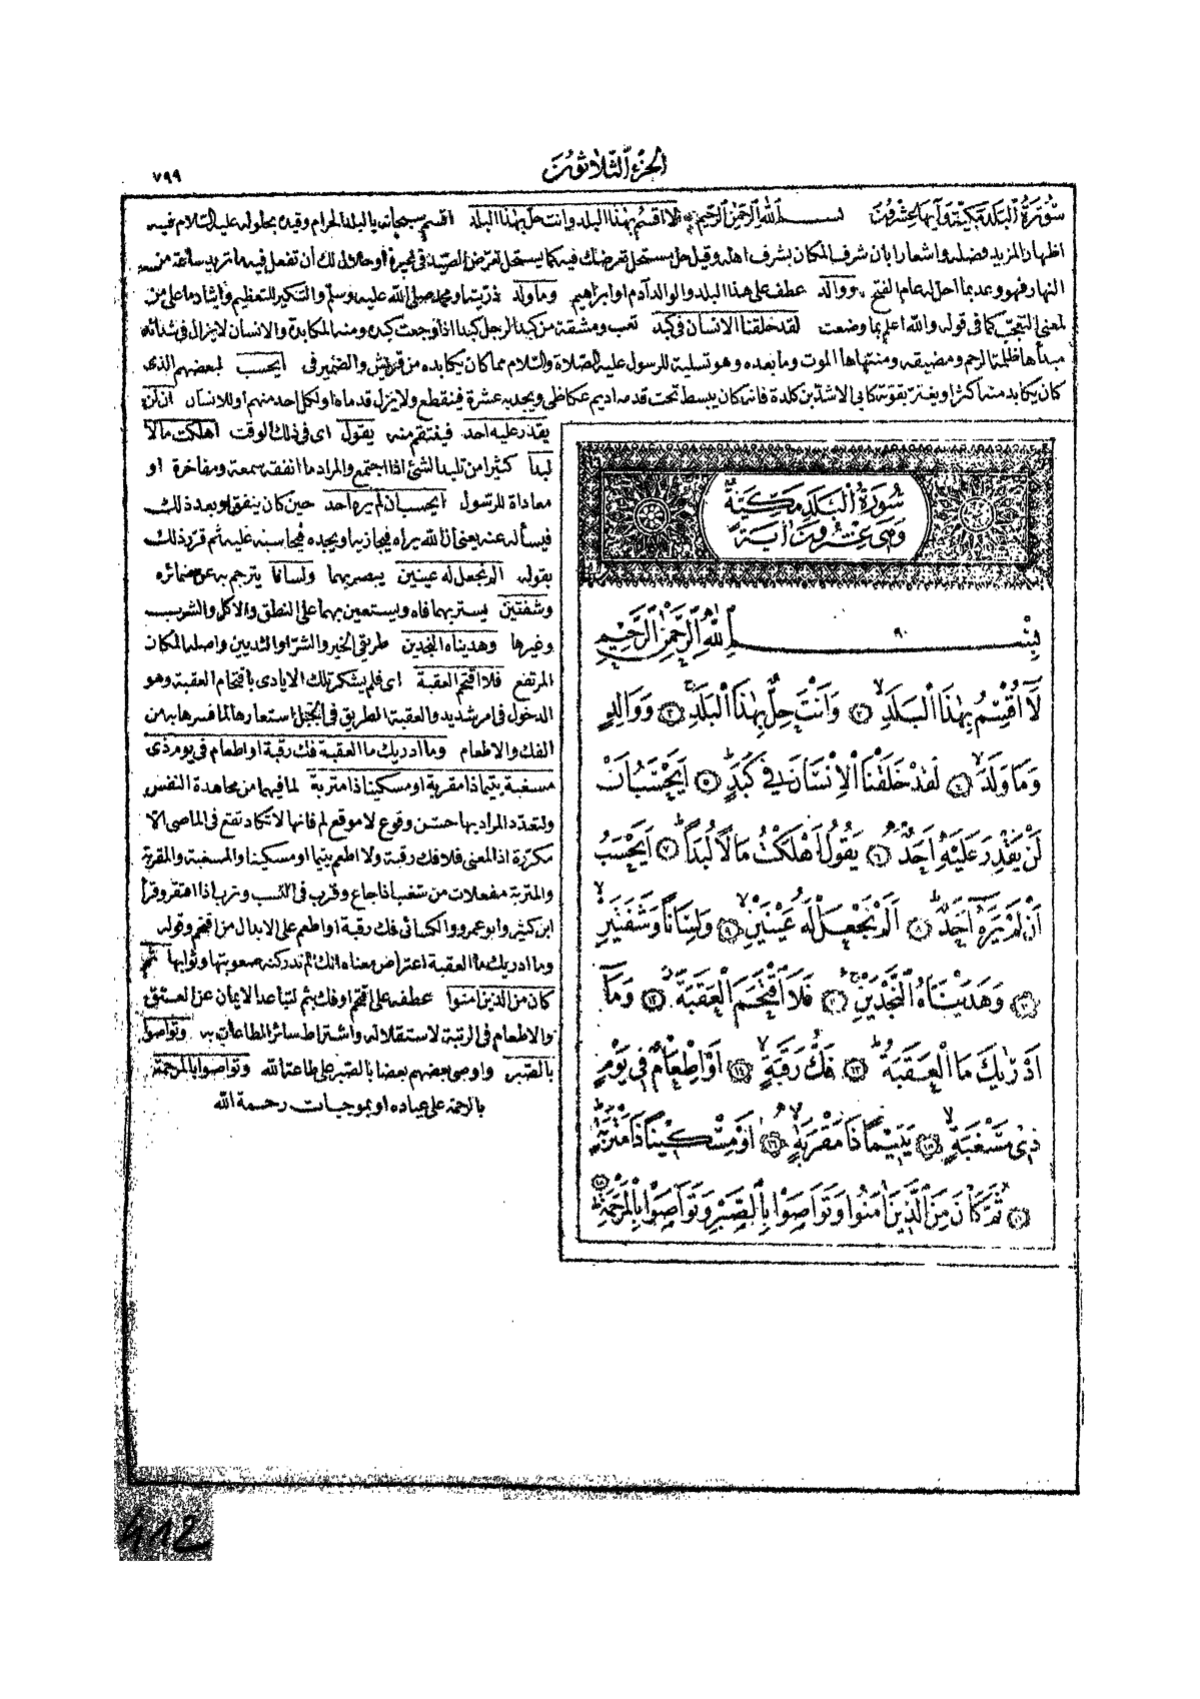 الجزء الثلاثون
٧٩٩
سورة البلد مكية وآيها عشرون بسم الله الرحمن الرحيم لا اقسم بهذا البلد وانت حل بهذا البلد اقسم سبحانه بالبلد الحرام وقيده بحلوله عليه السلام فيه
اظهارا لمزيد فضله واشعارا بان شرف المكان بشرف اهله وقيل حل مستحل تعرضك فيه كما يستحل تعرض الصيد في غيره او حلال لك ان تفعل فيه ما تريد ساعة من
النهار فهو وعد بما احل له عام الفتح ووالد عطف على هذا البلد والوالد آدم او ابراهيم وما ولد ذريته او محمد صلى الله عليه وسلم والتنكير للتعظيم وايثار ما على من
لمعنى التعجب كما في قوله والله اعلم بما وضعت لقد خلقنا الانسان في كبد تعب ومشقة من كبد الرجل كبدا اذا وجعت كبده ومنه المكابدة والانسان لا يزال في شدائد
مبدأها ظلمة الرحم ومضيقه ومنتهاها الموت وما بعده وهو تسلية للرسول عليه الصلاة والسلام مما كان يكابده من قريش والضمير في ايحسب لبعضهم الذى
كان يكابد منه اكثر او يغتر بقوته كابي الاشد بن كلدة فانه كان يبسط تحت قدمه اديم عكاظى ويجذبه عشرة فينقطع ولا يزل قدماه او لكل احد منهم او للانسان ان لن
يقدر عليه احد فينتقم منه يقول اى في ذلك الوقت اهلكت مالا
لبدا كثيرا من تلبد الشئ اذا اجتمع والمراد ما انفقه سمعة ومفاخرة او
معاداة للرسول ايحسب ان لم يره احد حين كان ينفق او بعد ذلك
فيسأله عنه يعنى ان الله يراه فيجازيه او يجده فيحاسبه عليه ثم قرر ذلك
بقوله الم نجعل له عينين يبصر بهما ولسانا يترجم به عن ضمائره
وشفتين يستر بهما فاه ويستعين بهما على النطق والاكل والشرب
وغيرها وهديناه النجدين طريقي الخير والشر او الثديين واصله المكان
المرتفع فلا اقتحم العقبة اى فلم يشكر تلك الايادى باقتحام العقبة وهو
الدخول في امر شديد والعقبة الطريق في الجبل استعارها لما فسرها به من
الفك والاطعام وما ادريك ما العقبة فك رقبة او اطعام في يوم ذى
مسغبة يتيما ذا مقربة او مسكينا ذا متربة لما فيهما من مجاهدة النفس
ولتعدد المراد بها حسن وقوع لا موقع لم فانها لا تكاد تقع في الماضى الا
مكررة اذ المعنى فلا فك رقبة ولا اطعم يتيما او مسكينا والمسغبة والمقربة
والمتربة مفعلات من سغب اذا جاع وقرب في النسب وترب اذا افتقر وقرأ
ابن كثير وابو عمرو والكسائى فك رقبة او اطعم على الابدال من اقتحم وقوله
وما ادريك ما العقبة اعتراض معناه انك لم تدر كنه صعوبتها وثوابها ثم
كان من الذين امنوا عطفه على اقتحم او فك بثم لتباعد الايمان عن العتق
والاطعام في الرتبة لاستقلاله واشتراط سائر الطاعات به وتواصوا
بالصبر واوصى بعضهم بعضا بالصبر على طاعة الله وتواصوا بالمرحمة
بالرحمة على عباده او بموجبات رحمة الله
سُورَةُ الْبَلَدِ مَكِّيَّةٌ
وَهِىَ عِشْرُونَ اٰيَةً
٩٠
بِسْمِ اللّٰهِ الرَّحْمٰنِ الرَّحِيمِ
لَٓا اُقْسِمُ بِهٰذَا الْبَلَدِ ۙ ٢ وَاَنْتَ حِلٌّ بِهٰذَا الْبَلَدِ ۙ ٣ وَوَالِدٍ
وَمَا وَلَدَ ۙ ٤ لَقَدْ خَلَقْنَا الْاِنْسَانَ فِى كَبَدٍ ۜ ٥ اَيَحْسَبُ اَنْ
لَنْ يَقْدِرَ عَلَيْهِ اَحَدٌ ۢ ٦ يَقُولُ اَهْلَكْتُ مَالًا لُبَدًا ۜ ٧ اَيَحْسَبُ
اَنْ لَمْ يَرَهُٓ اَحَدٌ ۜ ٨ اَلَمْ نَجْعَلْ لَهُ عَيْنَيْنِ ۙ ٩ وَلِسَانًا وَشَفَتَيْنِ ۙ
١٠ وَهَدَيْنَاهُ النَّجْدَيْنِ ۚ ١١ فَلَا اقْتَحَمَ الْعَقَبَةَ ۘ ١٢ وَمَٓا
اَدْرٰيكَ مَا الْعَقَبَةُ ۜ ١٣ فَكُّ رَقَبَةٍ ۙ ١٤ اَوْ اِطْعَامٌ فِى يَوْمٍ
ذِى مَسْغَبَةٍ ۙ ١٥ يَتِيمًا ذَا مَقْرَبَةٍ ۙ ١٦ اَوْ مِسْكِينًا ذَا مَتْرَبَةٍ ۜ
١٧ ثُمَّ كَانَ مِنَ الَّذِينَ اٰمَنُوا وَتَوَاصَوْا بِالصَّبْرِ وَتَوَاصَوْا بِالْمَرْحَمَةِ ۜ ١٨
412